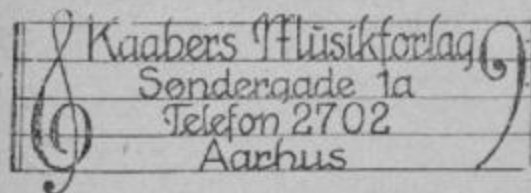 Kaabers Musikforlag
Søndergade 1a
Telefon 2702
Aarhus